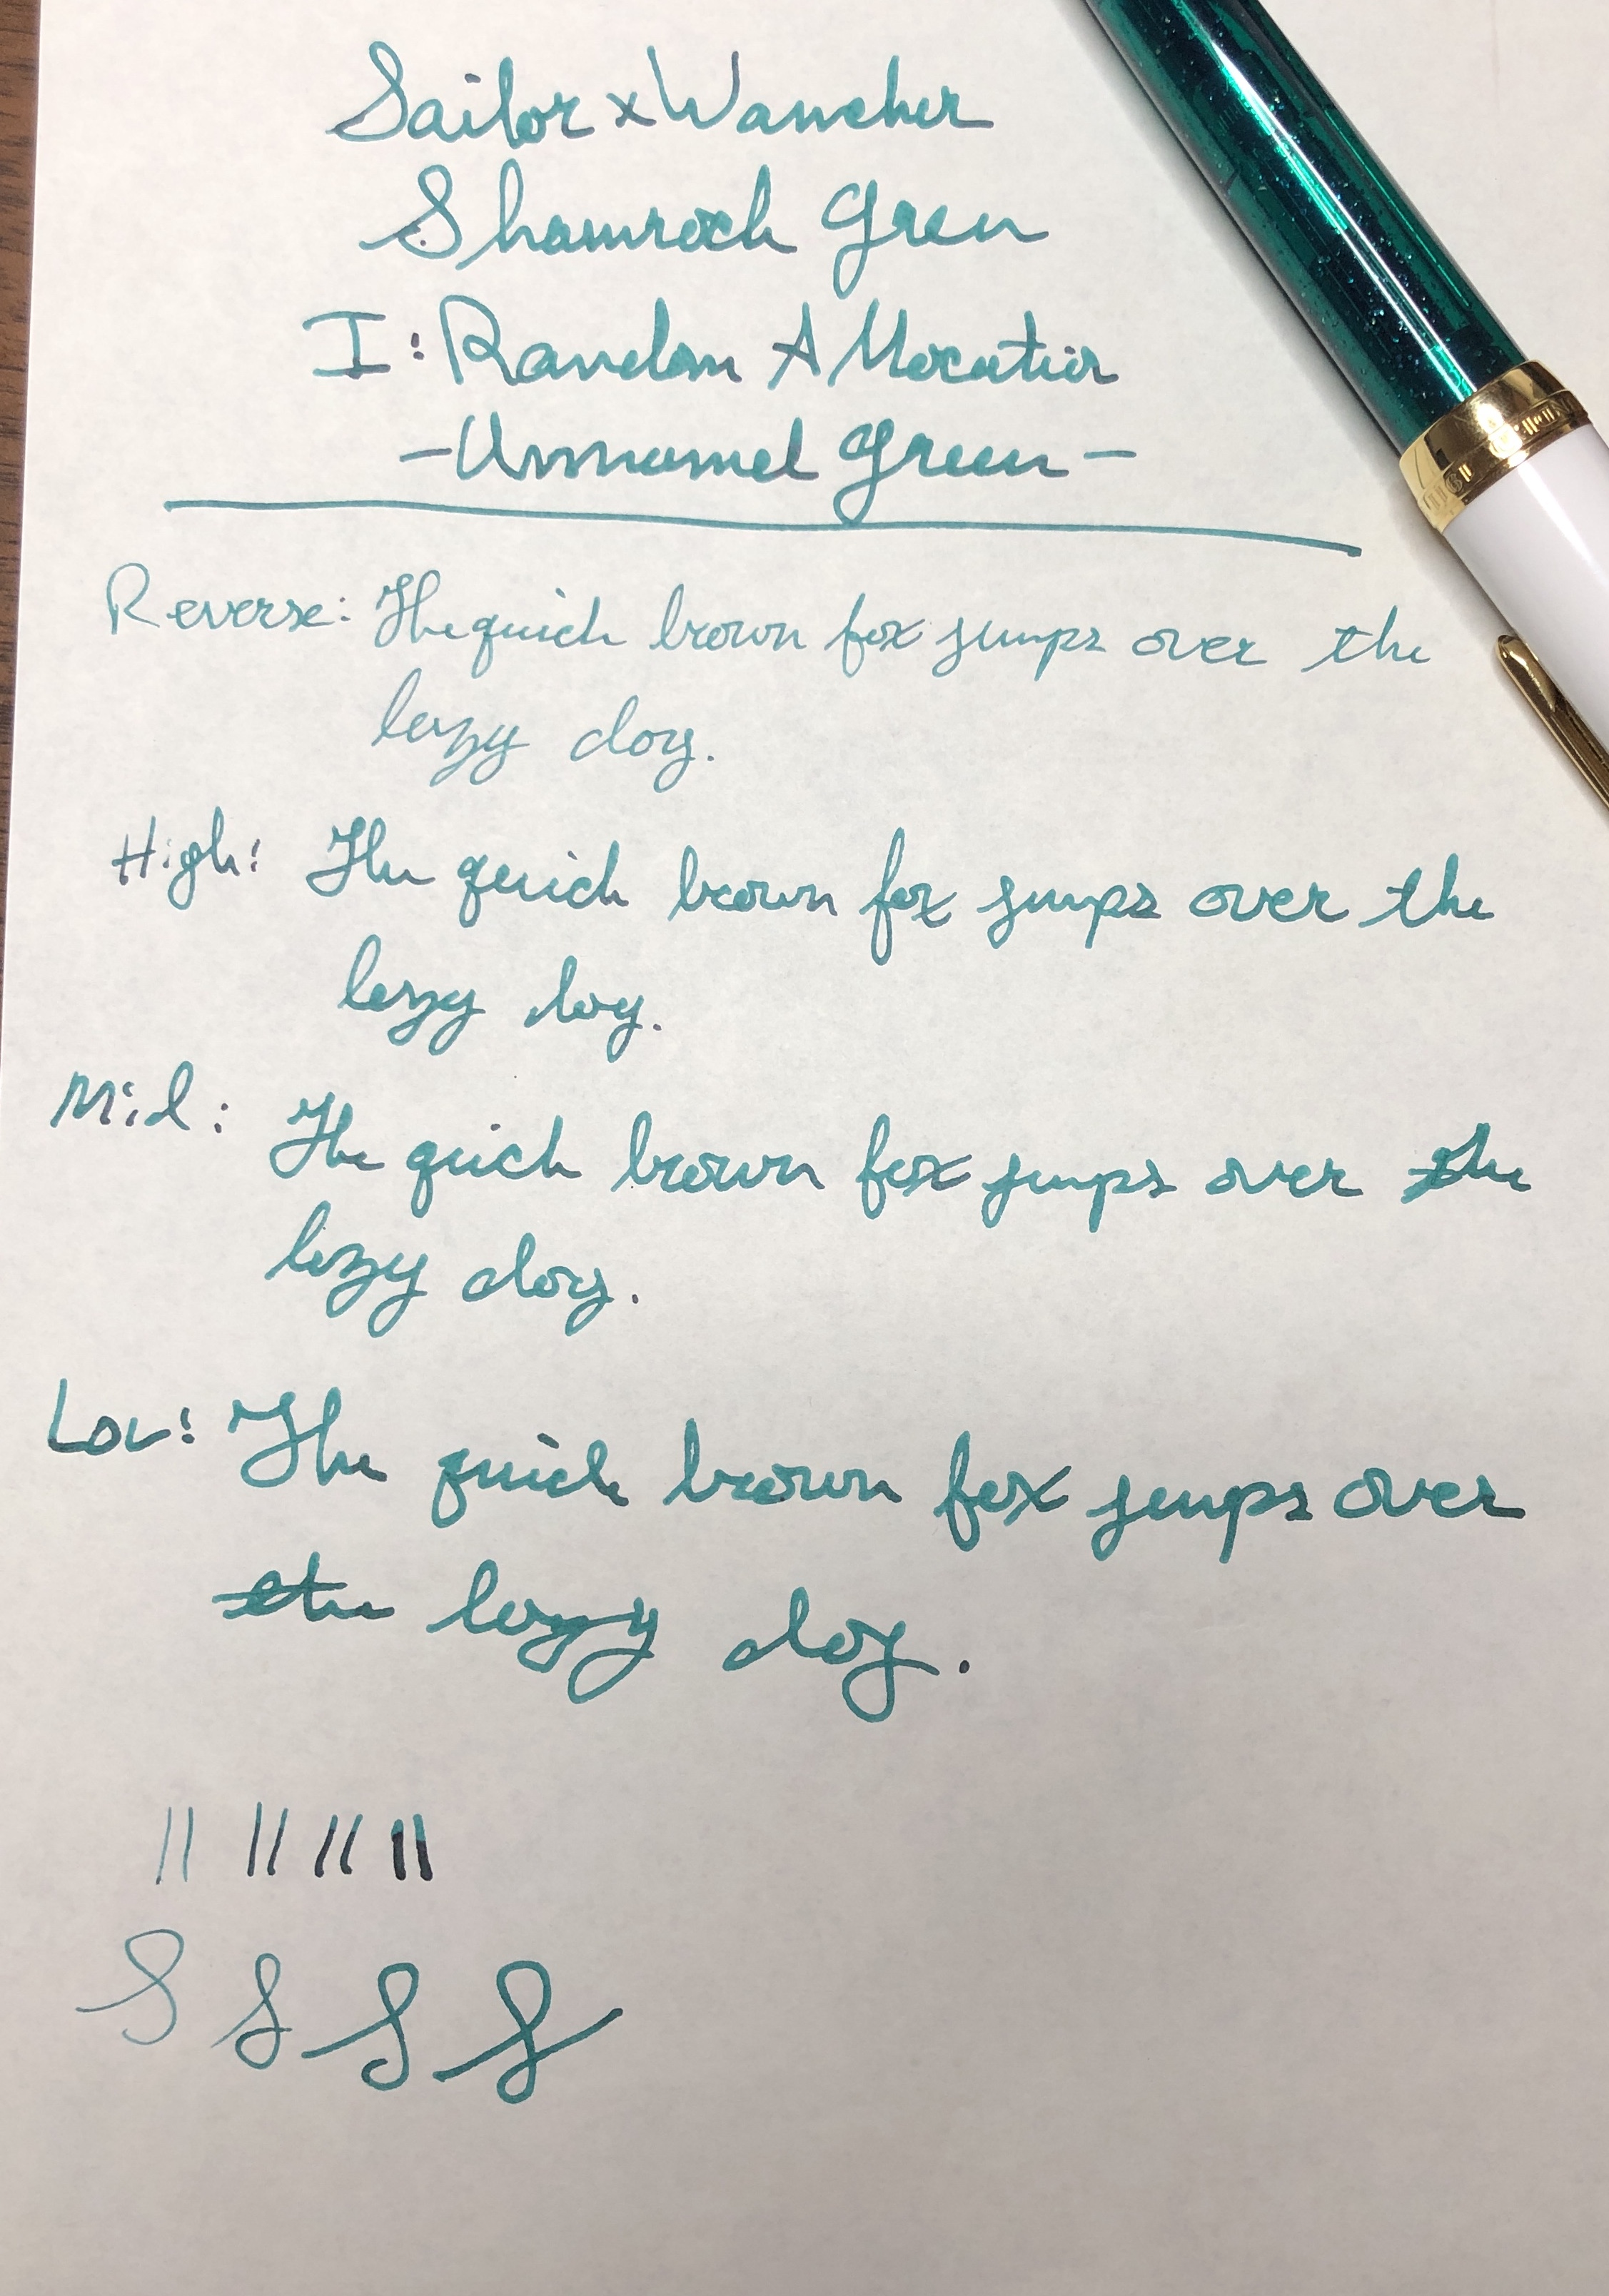 Sailor x Wancher
Shamrock Green
I: Random Allocation
-Unnamed Green-
Reverse: The quick brown fox jumps over the
lazy dog.
High: The quick brown fox jumps over the
lazy dog.
Mid: The quick brown fox jumps over the
lazy dog.
Low: The quick brown fox jumps over
the lazy dog.
S S S S